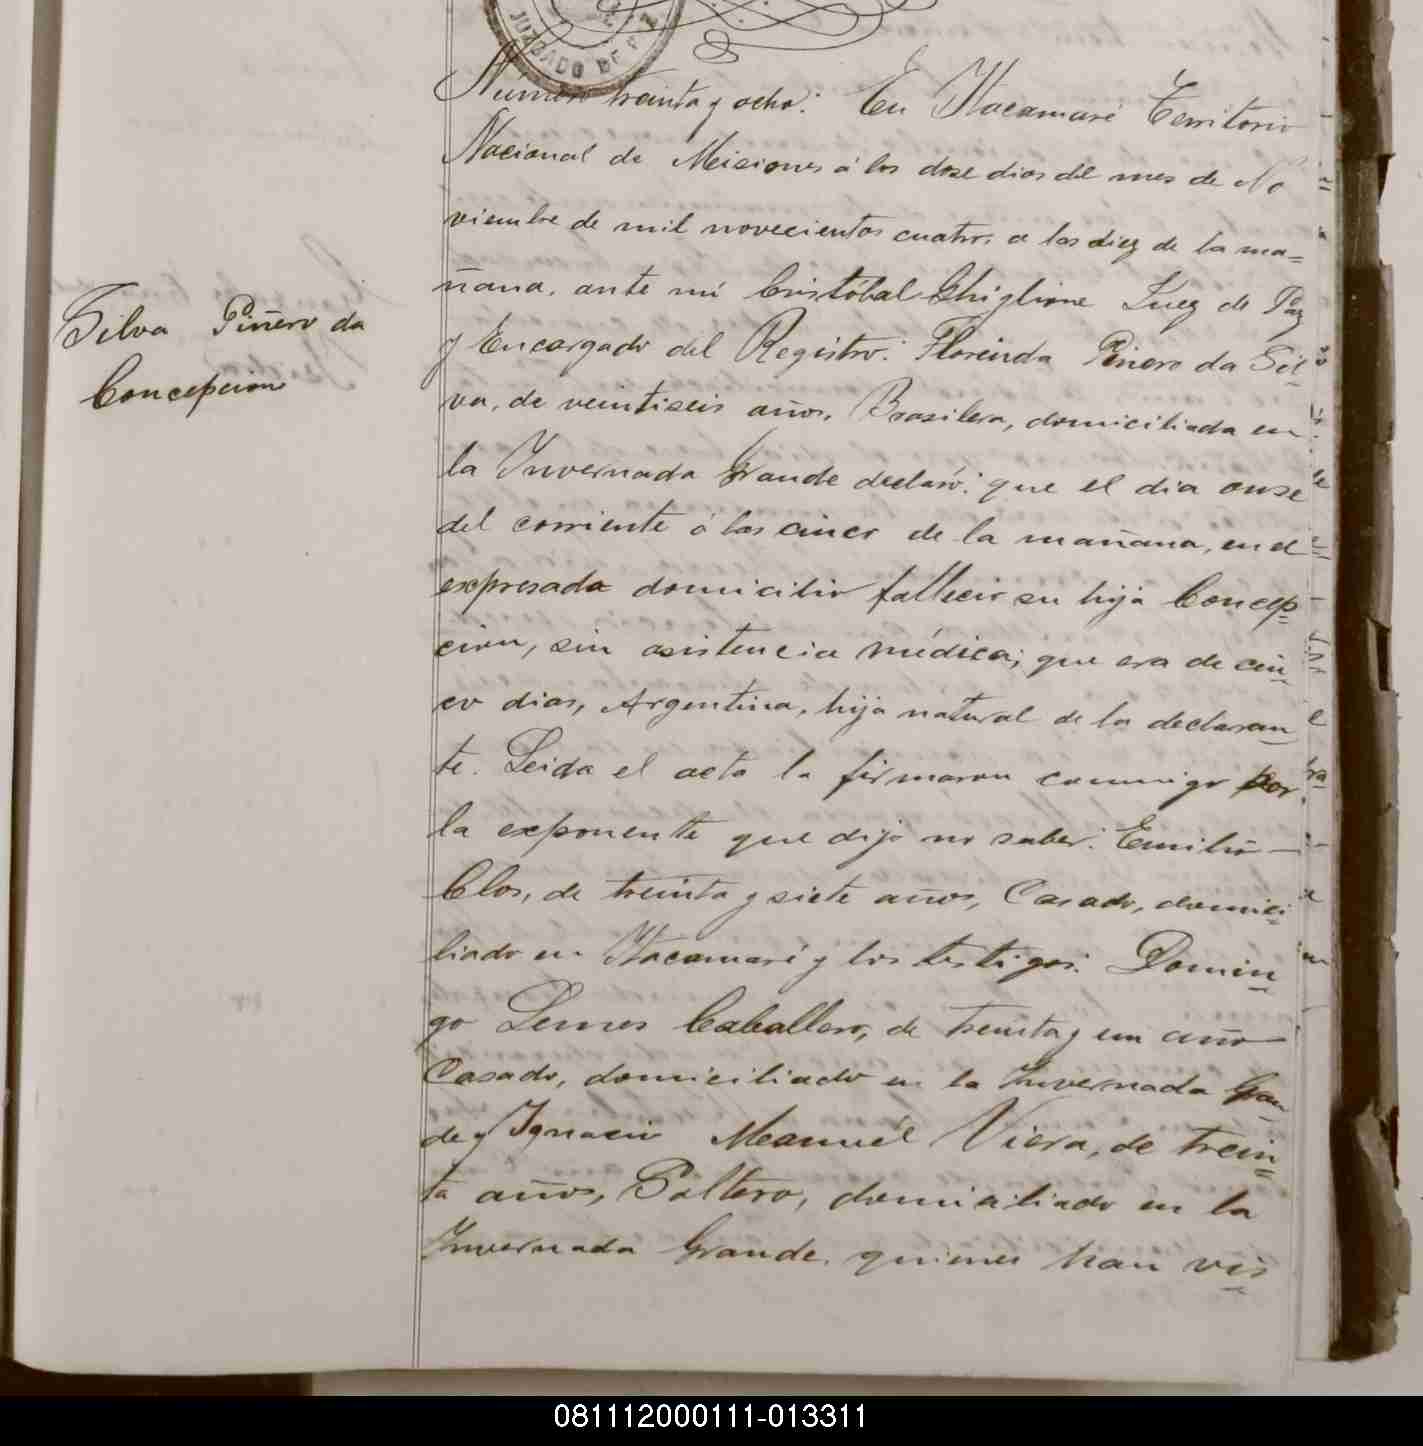 JUZGADO DE PAZ
Numero treinta y ocho: En Itacamaré Territorio
Nacional de Misiones á los dose dias del mes de No
viembre de mil novecientos cuatro, a las diez de la ma=
ñana, ante mi Cristóbal Ghiglione Juez de Paz
y Encargado del Registro: Florinda Piñero da Sil-
va, de veintiseis años, Brasilera, domiciliada en
la Invernada Grande declaró: que el dia onse
del corriente á las cinco de la mañana, en el
expresado domicilio fallecio su hija Concep=
cion, sin asistencia médica; que era de cin=
co dias, Argentina, hija natural de la declaran-
te. Leida el acta la firmaron conmigo por
la exponente que dijo no saber: Emilio —
Clos, de treinta y siete años, Casado, domici=
liado en Itacamaré y los testigos: Domin=
go Lemes Caballero, de treinta y un año
Casado, domiciliado en la Invernada Gran-
de y Ignacio Manuél Viera, de trein=
ta años, Soltero, domiciliado en la
Invernada Grande, quienes han vis=
Silva Piñero da
Concepcion
081112000111-013311